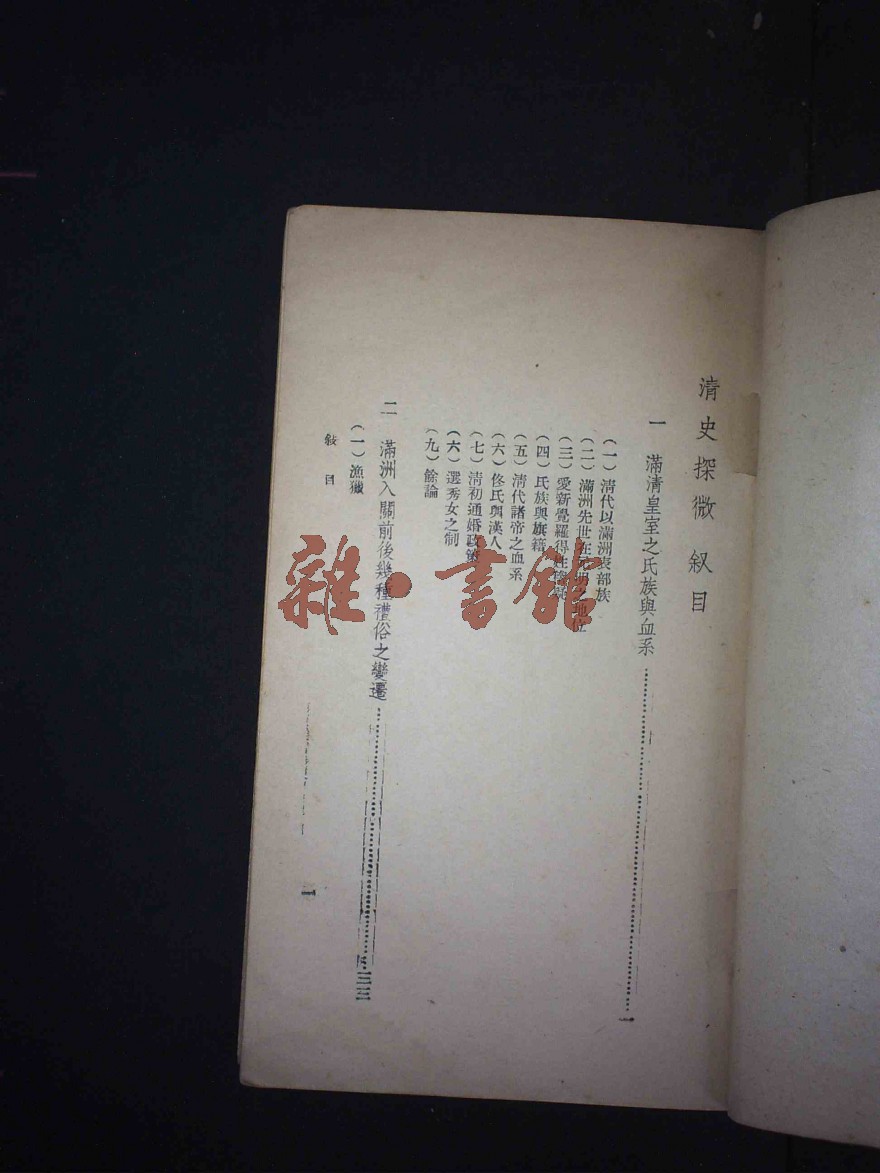 清史探微叙目
一 滿清皇室之氏族與血系
(一)清代以滿洲表部族
(二)滿洲先世在元明之地位
(三)愛新覺羅得姓稽疑
(四)氏族與旗籍
(五)清代諸帝之血系
(六)佟氏與漢人
(七)清初通婚政策
(六)選秀女之制
(九)餘論
二 滿洲入關前後幾種禮俗之變遷
(一)漁獵
敍目
一
雜·書館